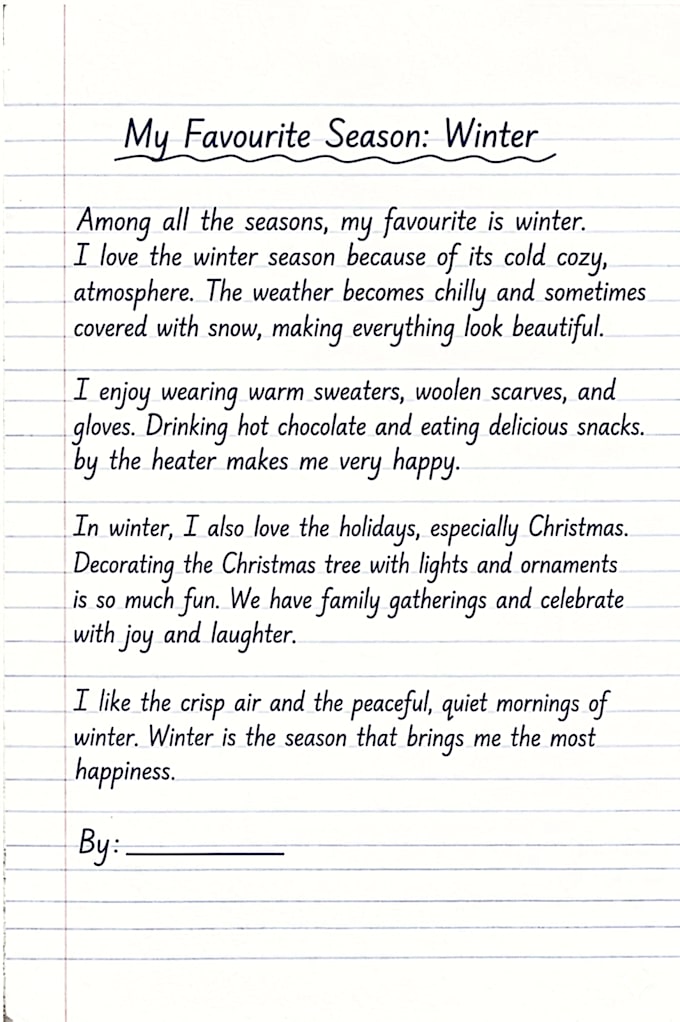 My Favourite Season: Winter
Among all the seasons, my favourite is winter.
I love the winter season because of its cold cozy,
atmosphere. The weather becomes chilly and sometimes
covered with snow, making everything look beautiful.
I enjoy wearing warm sweaters, woolen scarves, and
gloves. Drinking hot chocolate and eating delicious snacks.
by the heater makes me very happy.
In winter, I also love the holidays, especially Christmas.
Decorating the Christmas tree with lights and ornaments
is so much fun. We have family gatherings and celebrate
with joy and laughter.
I like the crisp air and the peaceful, quiet mornings of
winter. Winter is the season that brings me the most
happiness.
By: __________